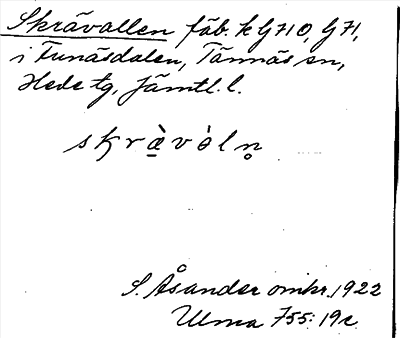 Skrävallen fäb. k G 71 O, G 71,
i Funäsdalen, Tännäs sn,
Hede tg, Jämtl. l.
skrä̀vòln̥
S. Åsander omkr. 1922
Ulma 755: 19c